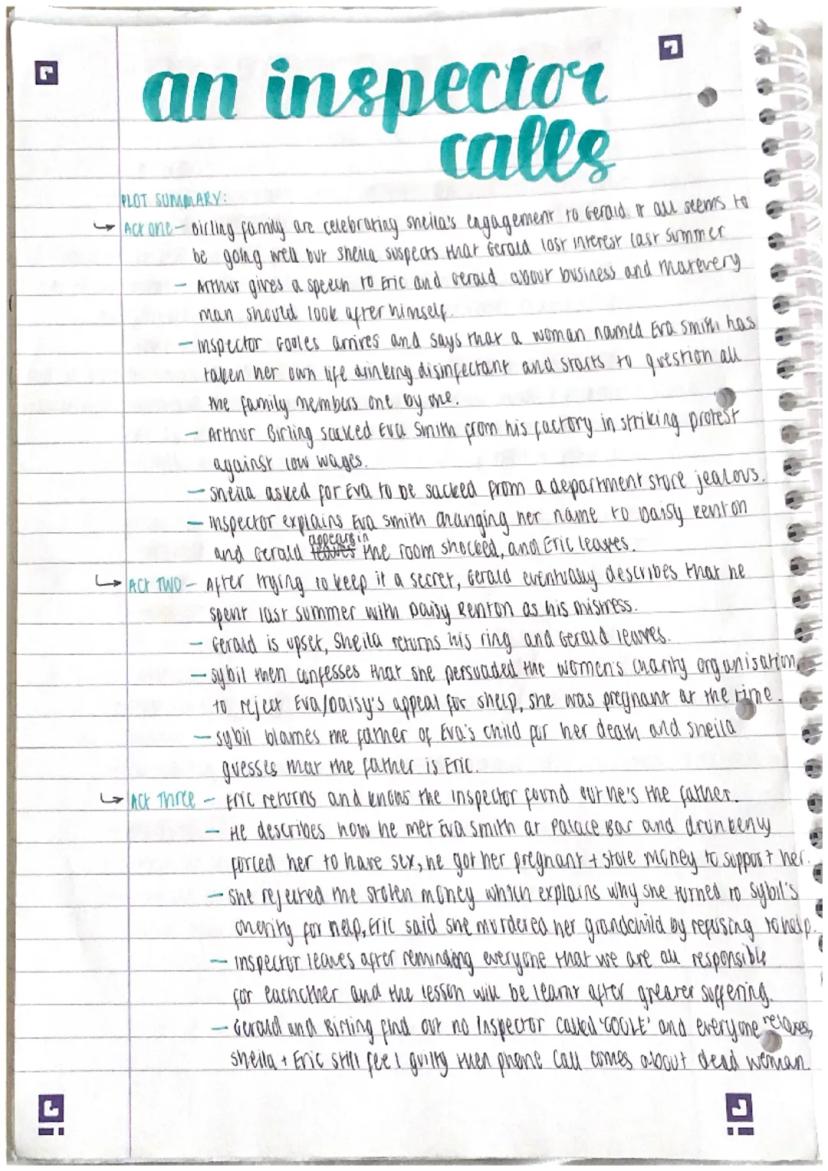 an inspector
calls
PLOT SUMMARY:
↳ ACT ONE - Birling family are celebrating Sheila's engagement to Gerald. It all seems to
be going well but Sheila suspects that Gerald lost interest last summer
- Arthur gives a speech to Eric and Gerald about business and that every
man should look after himself.
- Inspector Gooles arrives and says that a woman named Eva Smith has
taken her own life drinking disinfectant and starts to question all
the family members one by one.
- Arthur Birling sacked Eva Smith from his factory in striking protest
against low wages.
- Sheila asked for Eva to be sacked from a department store jealous.
- Inspector explains Eva Smith changing her name to Daisy Renton
appears in
and Gerald leaves the room shocked, and Eric leaves.
↳ ACT TWO - After trying to keep it a secret, Gerald eventually describes that he
spent last summer with Daisy Renton as his mistress.
- Gerald is upset, Sheila returns his ring and Gerald leaves.
- Sybil then confesses that she persuaded the women's charity organisation
to reject Eva/Daisy's appeal for shelp, she was pregnant at the time.
- Sybil blames the father of Eva's child for her death and Sheila
guesses that the father is Eric.
↳ ACT THREE - Eric returns and knows the inspector found out he's the father.
- He describes how he met Eva Smith at Palace Bar and drunkenly
forced her to have sex, he got her pregnant + stole money to support her.
- She rejected the stolen money which explains why she turned to Sybil's
charity for help, Eric said she murdered her grandchild by refusing to help.
- Inspector leaves after reminding everyone that we are all responsible
for eachother and the lesson will be learnt after greater suffering.
- Gerald and Birling find out no Inspector called 'GOOLE' and everyone relaxes,
Sheila + Eric still feel guilty then phone call comes about dead woman